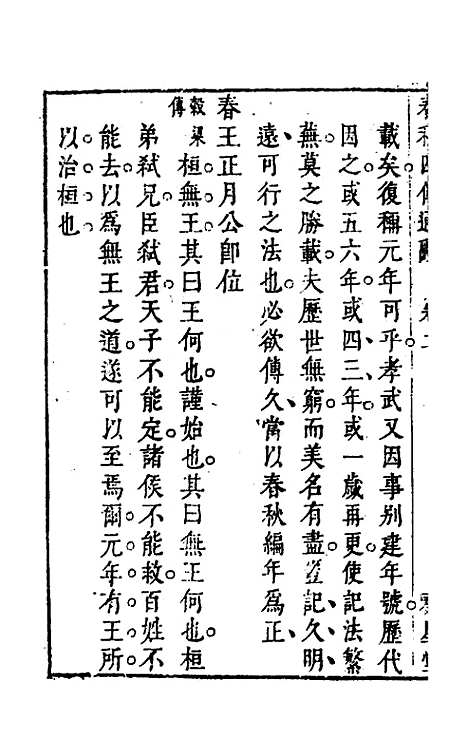 載矣復稱元年可乎孝武又因事别建年號歷代
因之或五六年或四三年或一歲再更使記法繁
蕪莫之勝載夫歷世無窮而美名有盡豈記久明
遠可行之法也必欲傳久當以春秋編年爲正
春王正月公卽位
穀梁傳 桓無王其曰王何也謹始也其曰無王何也桓
弟弑兄臣弑君天子不能定諸侯不能救百姓不
能去以爲無王之道遂可以至焉爾元年有王所
以治桓也